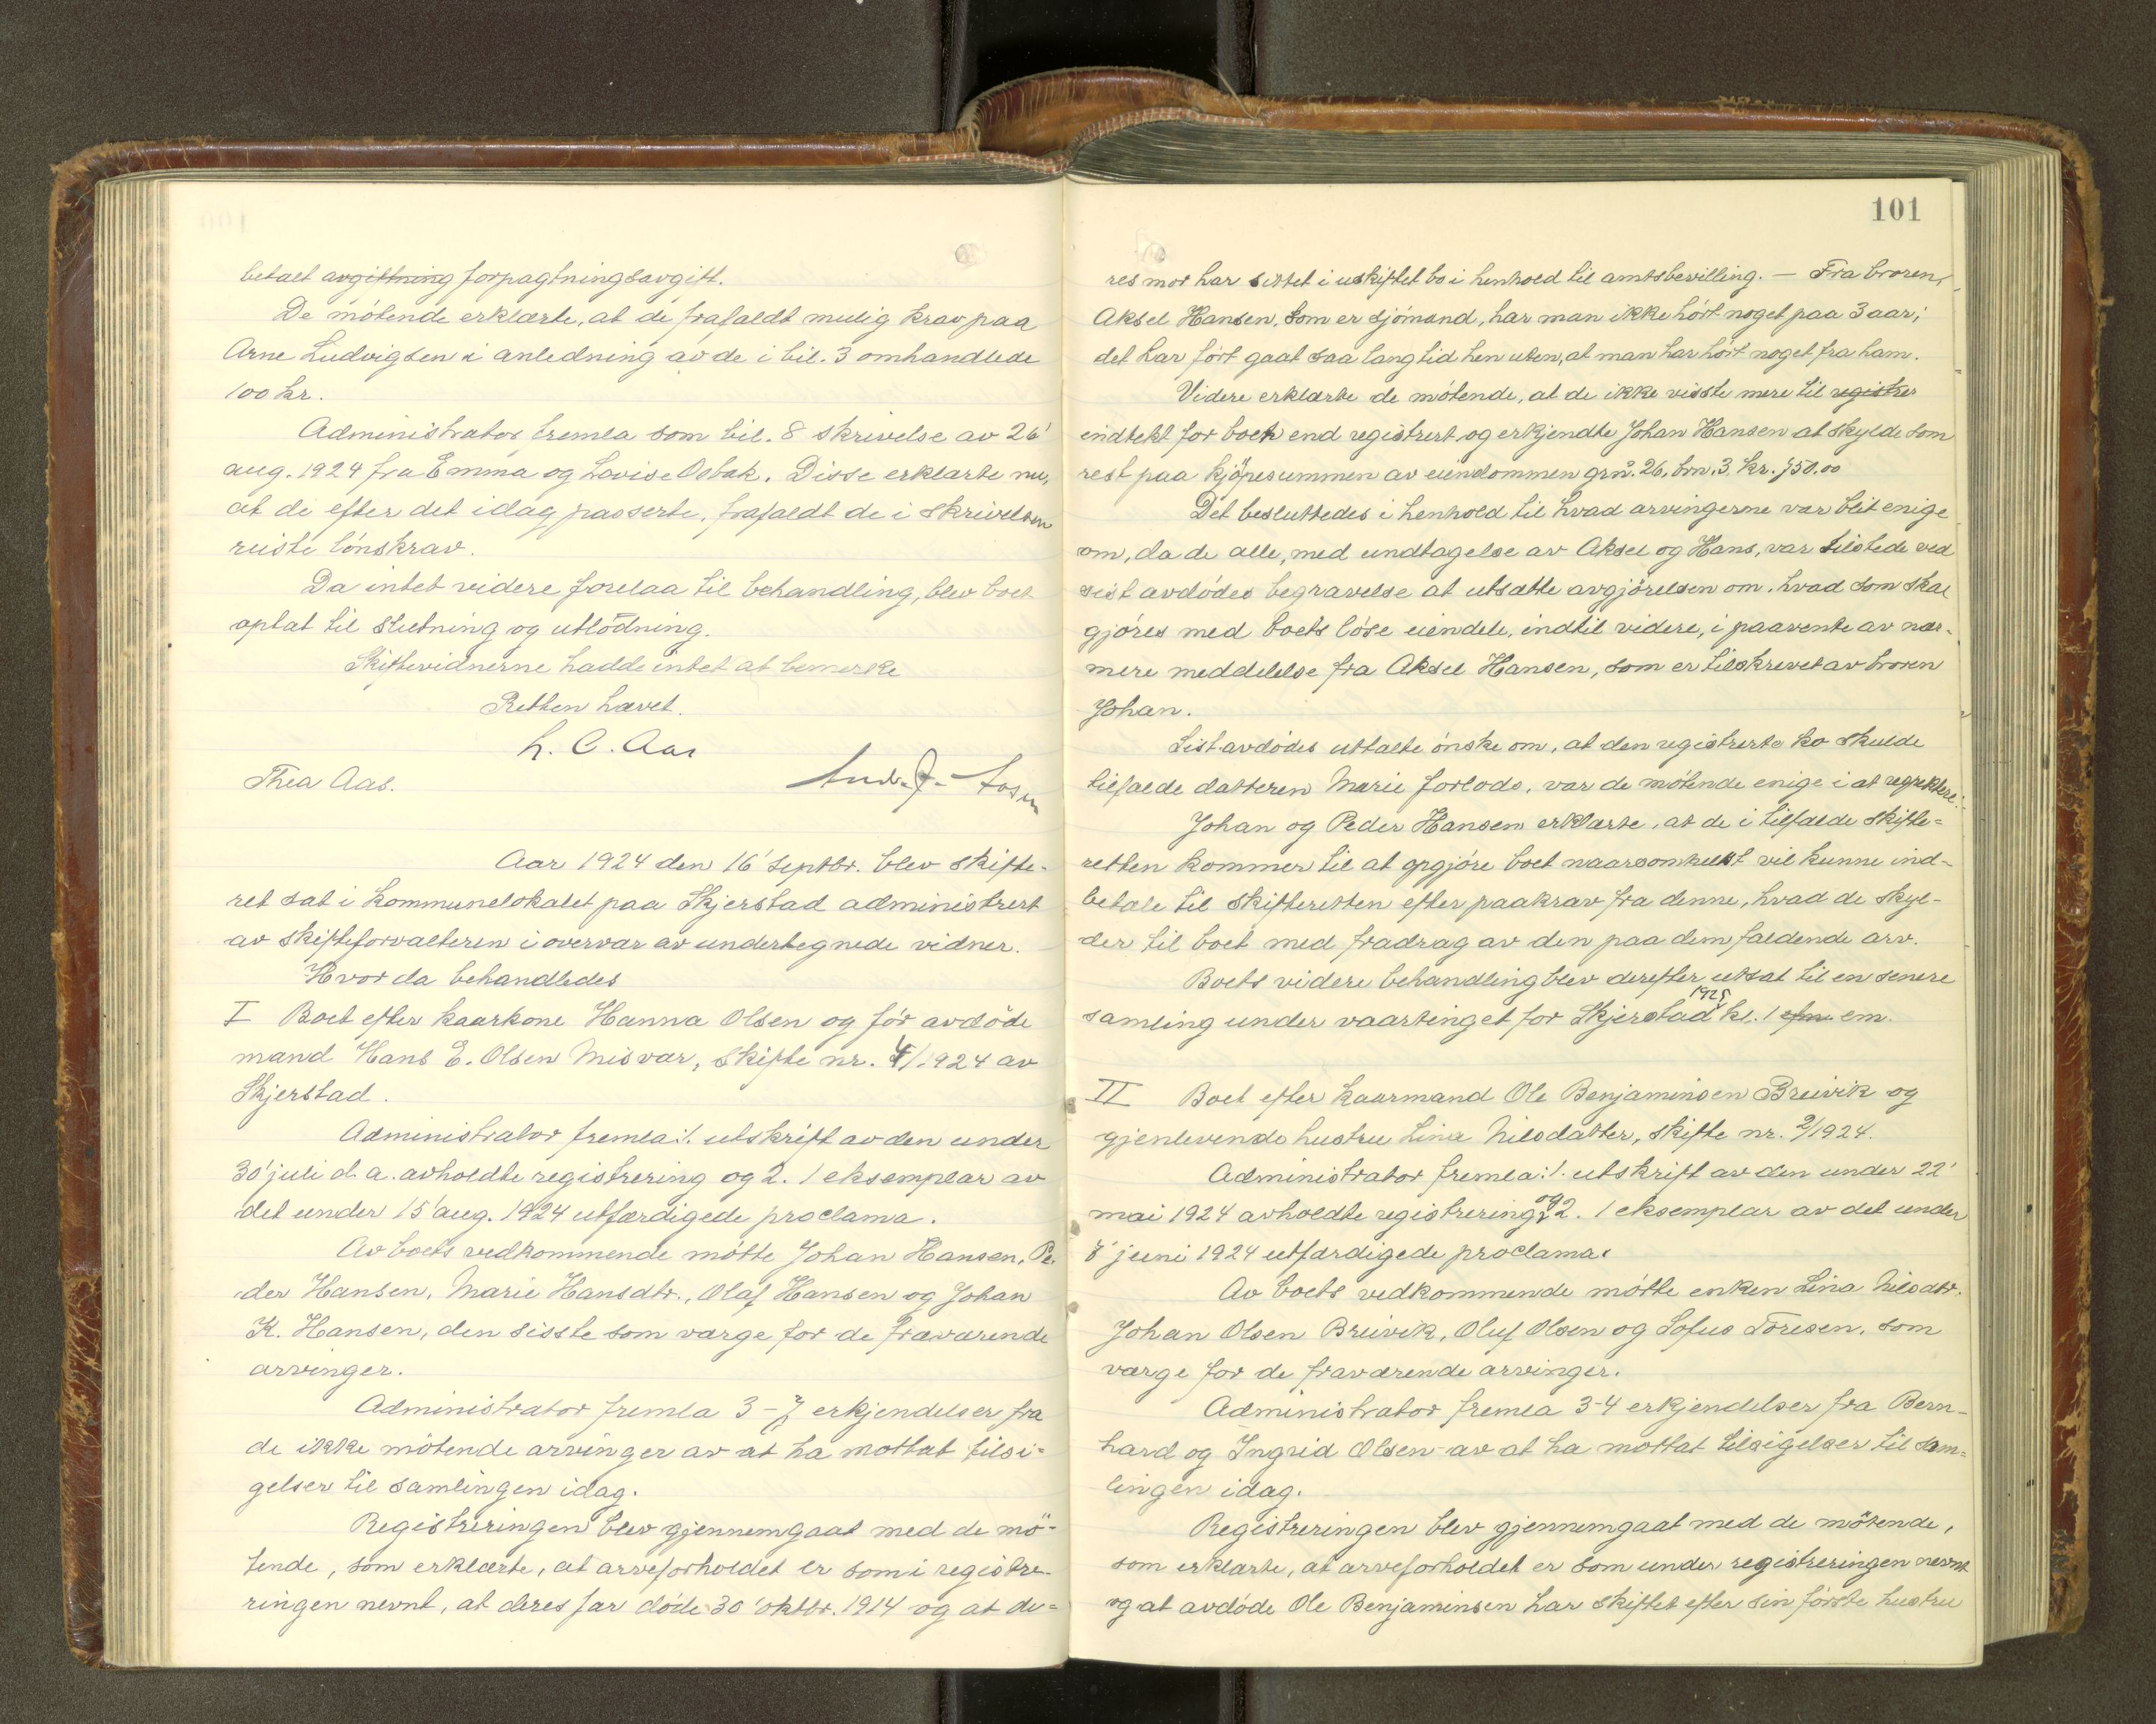 betalt avgiftning forpagtningsavgift.
De møtende erklærte, at de frafaldt mulig krav paa
Arne Ludvigsen i anledning av de i bil. 3 omhandlede
100 kr.
Administrator fremla som bil. 8 skrivelse av 26'
aug. 1924 fra Emma og Lovise Osbak. Disse erklærte nu,
at de efter det idag passerte, frafaldt de i skrivelsen
reiste lønskrav.
Da intet videre forelaa til behandling, blev boet
optat til slutning og utlodning.
Skiftevidnerne hadde intet at bemerke
Retten hævet.
H. C. Aas
Thea Aas.
Aar 1924 den 16' septbr. blev skifte-
ret sat i kommunelokalet paa Skjerstad administrert
av skifteforvalteren i overvær av undertegnede vidner.
Hvor da behandledes
I Boet efter kaarkone Hanna Olsen og før avdøde
mand Hans E. Olsen Misvær, skifte nr. 4/1924 av
Skjerstad.
Administrator fremla: 1. utskrift av den under
30' juli d. a. avholdte registrering og 2. 1 eksemplar av
det under 15' aug. 1924 utfærdigede proclama.
Av boets vedkommende møtte Johan Hansen, Pe-
der Hansen, Marie Hansdtr., Olaf Hansen og Johan
K. Hansen, den sisste som værge for de fraværende
arvinger.
Administrator fremla 3-7 erkjendelser fra
de ikke møtende arvinger av at ha mottat tilsi-
gelser til samlingen idag.
Registreringen blev gjennemgaat med de mø-
tende, som erklærte, at arveforholdet er som i registre-
ringen nevnt, at deres far døde 30' oktbr. 1914 og at de-
101
res mor har sittet i uskiftet bo i henhold til amtsbevilling. — Fra broren,
Aksel Hansen, som er sjømand, har man ikke hørt noget paa 3 aar;
det har før gaat saa lang tid hen uten, at man har hørt noget fra ham.
Videre erklærte de møtende, at de ikke visste mere til registrer
indtekt for boet end registrert og erkjendte Johan Hansen at skylde som
rest paa kjøpesummen av eiendommen grn. 26, brn. 3. kr. 750.00
Det besluttedes i henhold til hvad arvingerne var blit enige
om, da de alle, med undtagelse av Aksel og Hans, var tilstede ved
sist avdødes begravelse at utsætte avgjørelsen om, hvad som skal
gjøres med boets løse eiendele, indtil videre, i paavente av nær-
mere meddelelse fra Aksel Hansen, som er tilskrevet av broren
Johan.
Sist avdødes uttalte ønske om, at den registrerte ko skulde
tilfalde datteren Marie forlods, var de møtende enige i at respektere.
Johan og Peder Hansen erklærte, at de i tilfælde skifte-
retten kommer til at opgjøre boet naarsomhelst vil kunne ind-
betale til skifteretten efter paakrav fra denne, hvad de skyl-
der til boet med fradrag av den paa dem faldende arv.
Boets videre behandling blev derefter utsat til en senere
samling under vaartinget for Skjerstad 1925 kl. 1 efm em.
II Boet efter kaarmand Ole Benjaminsen Breivik og
gjenlevende hustru Lina Nilsdatter, skifte nr. 2/1924.
Administrator fremla: 1. utskrift av den under 22'
mai 1924 avholdte registrering og 2. 1 eksemplar av det under
8' juni 1924 utfærdigede proclama.
Av boets vedkommende møtte enken Lina Nilsdtr.
Johan Olsen Breivik, Oluf Olsen og Sofus Toresen, som
værge for de fraværende arvinger.
Administrator fremla 3-4 erkjendelser fra Bern-
hard og Ingrid Olsen av at ha mottat tilsigelser til sam-
lingen idag.
Registreringen blev gjennemgaat med de møtende,
som erklærte, at arveforholdet er som under registreringen nevnt
og at avdøde Ole Benjaminsen har skiftet efter sin første hustru